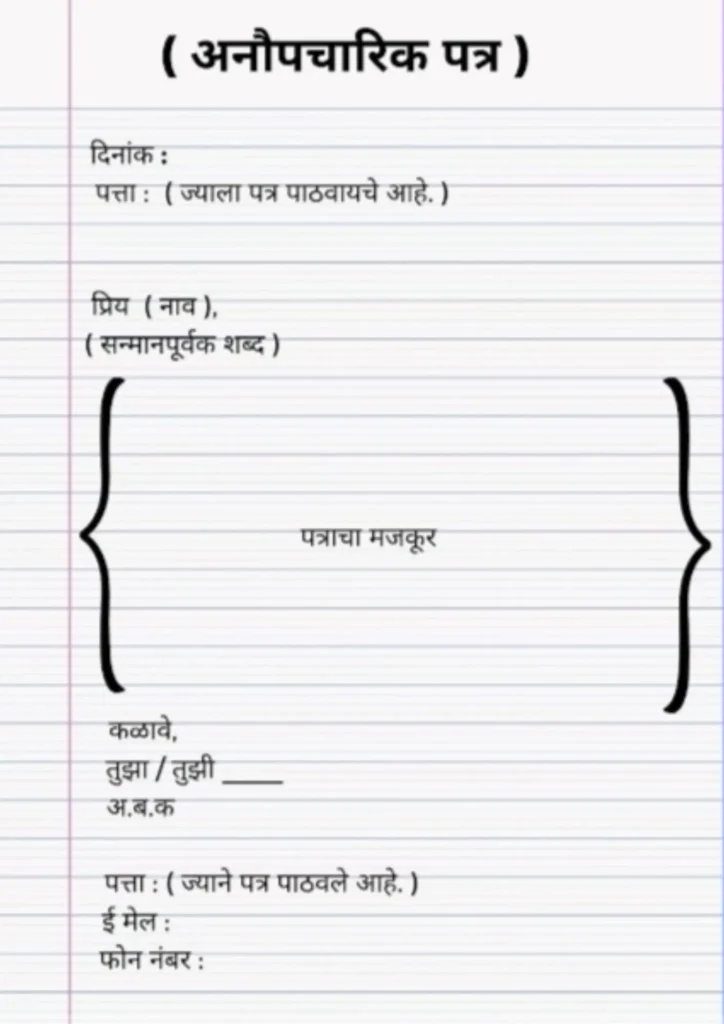 ( अनौपचारिक पत्र )
दिनांक :
पत्ता : ( ज्याला पत्र पाठवायचे आहे. )
प्रिय ( नाव ),
( सन्मानपूर्वक शब्द )
पत्राचा मजकूर
कळावे,
तुझा / तुझी ____
अ.ब.क
पत्ता : ( ज्याने पत्र पाठवले आहे. )
ई मेल :
फोन नंबर :